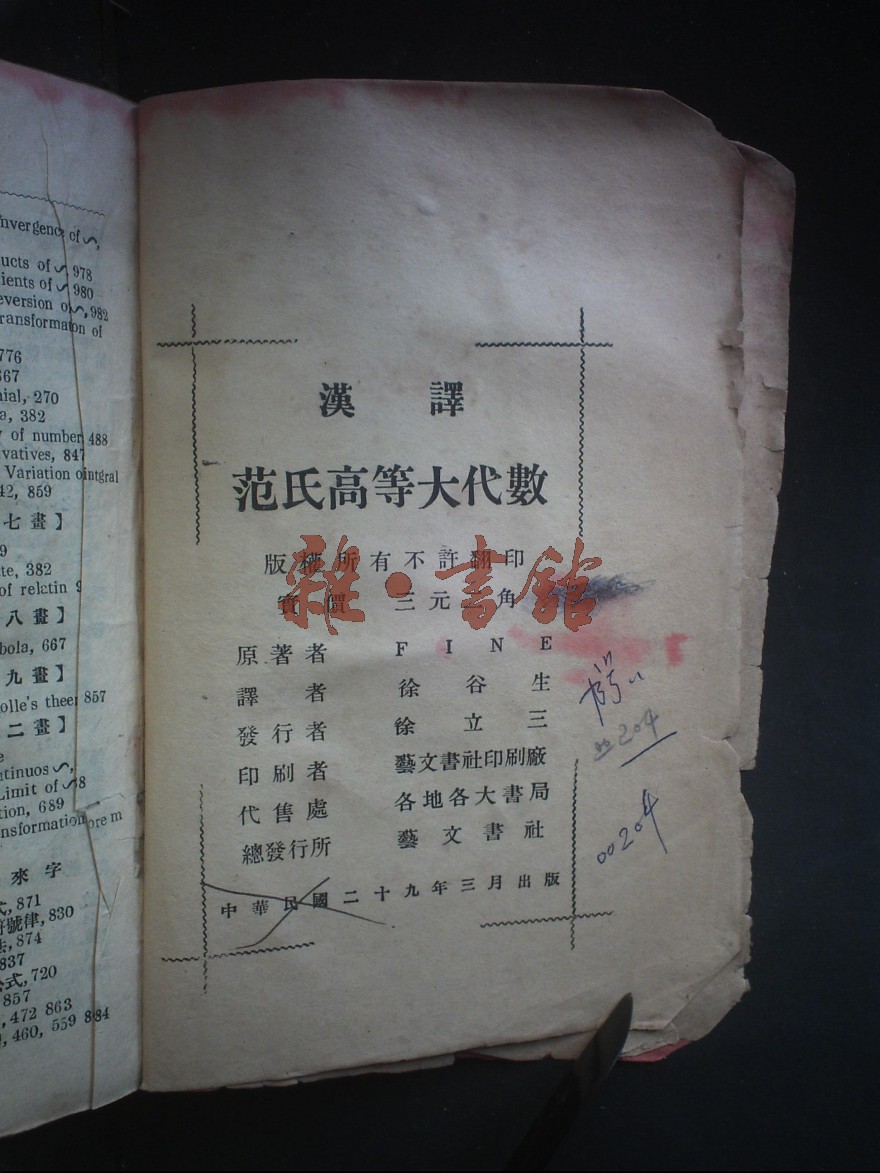 nvergence of ∽,
ucts of ∽ 978
ients of ∽ 980
eversion o∽, 982
ransformaton of
776
667
nial, 270
a, 382
y of number 488
vatives, 847
Variation ointgral
42, 859
七畫】
9
te, 382
of relctin 9
八畫】
bola, 667
九畫】
olle's theer 857
二畫】
e
ntinuos ∽,
Limit of ∽8
tion, 689
nsformation ore m
來字
式, 871
符號律, 830
法, 874
837
公式, 720
857
, 472 863
, 460, 559 884
漢譯
范氏高等大代數
版權所有不許翻印
實價 三元二角
雜·書館
原著者 FINE
譯者 徐谷生
發行者 徐立三
印刷者 藝文書社印刷廠
代售處 各地各大書局
總發行所 藝文書社
中華民國二十九年三月出版
204
00204